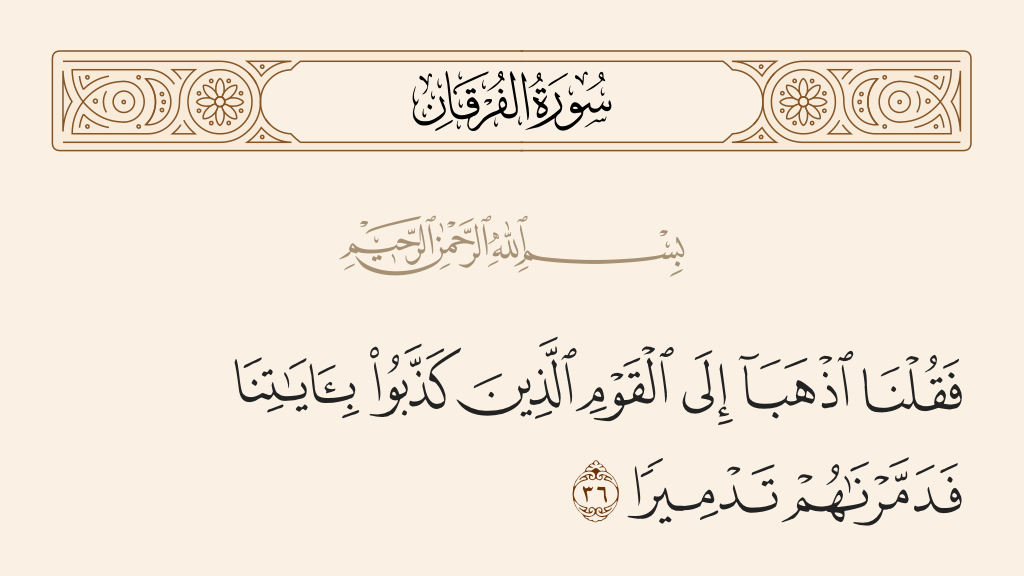 سُورَةُ الفُرْقَانِ
بِسْمِ ٱللَّهِ ٱلرَّحْمَٰنِ ٱلرَّحِيمِ
فَقُلْنَا ٱذْهَبَآ إِلَى ٱلْقَوْمِ ٱلَّذِينَ كَذَّبُوا۟ بِـَٔايَـٰتِنَا
فَدَمَّرْنَـٰهُمْ تَدْمِيرًا ٣٦